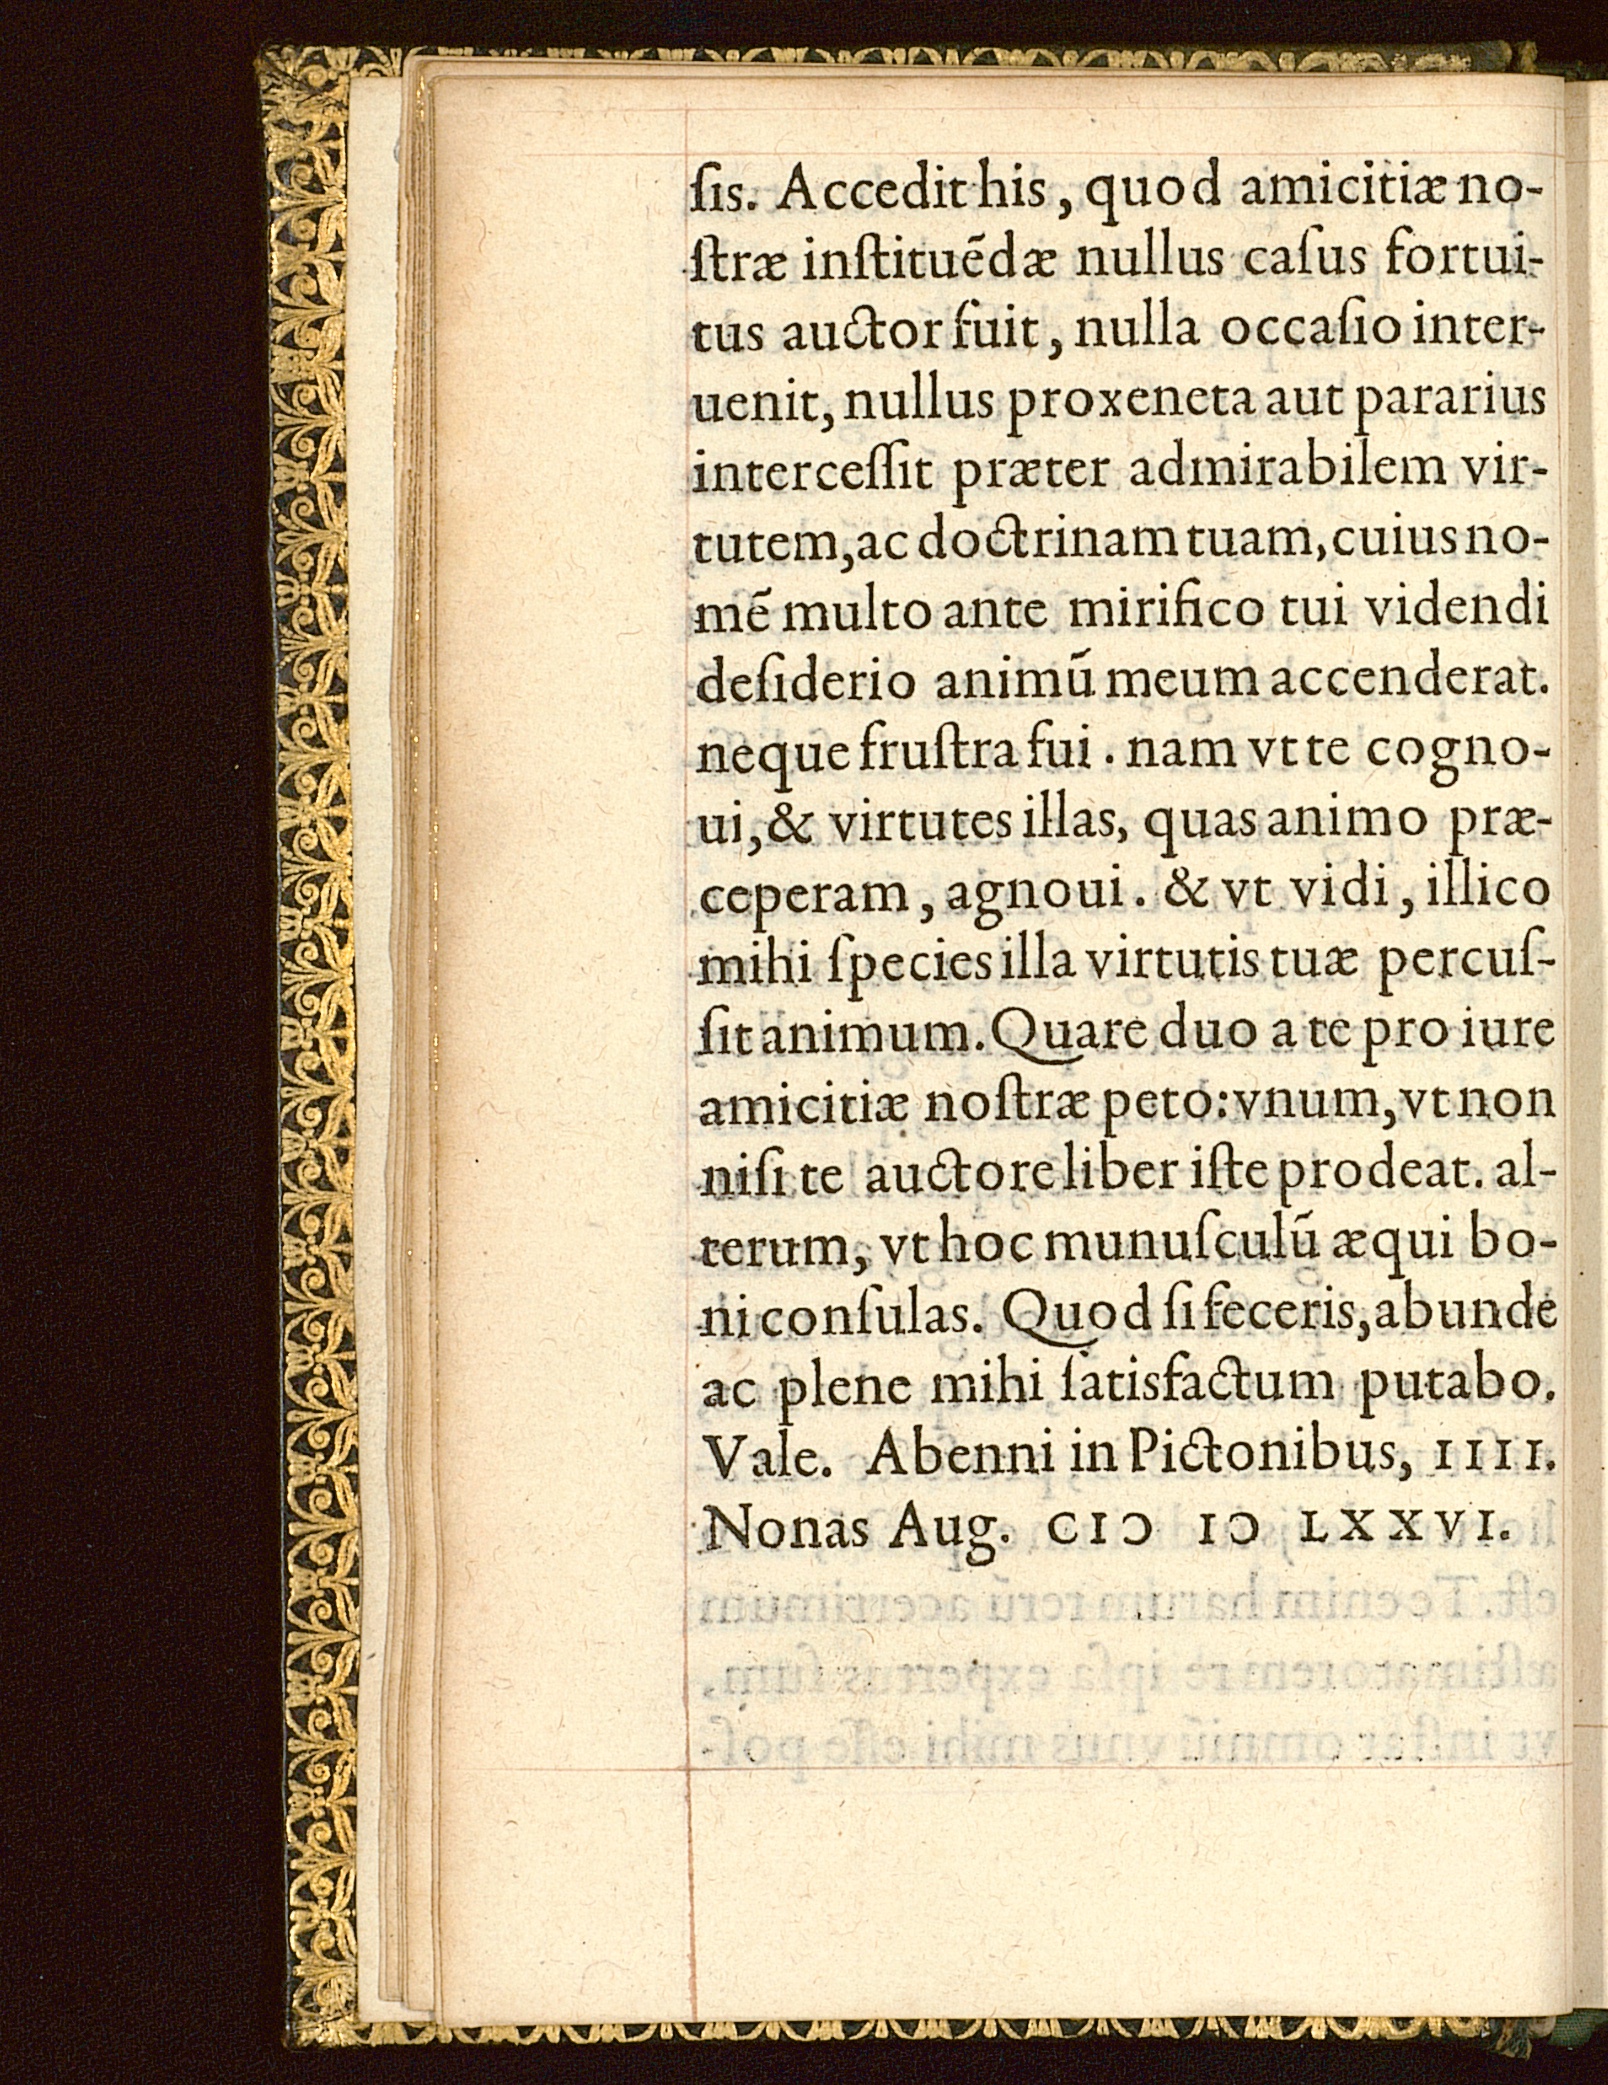 ſis. Accedit his, quod amicitiæ no-
ſtræ inſtituẽdæ nullus caſus fortui-
tus auctor fuit, nulla occaſio inter-
uenit, nullus proxeneta aut pararius
interceſſit præter admirabilem vir-
tutem, ac doctrinam tuam, cuius no-
mẽ multo ante mirifico tui videndi
deſiderio animũ meum accenderat.
neque fruſtra fui. nam vt te cogno-
ui, & virtutes illas, quas animo præ-
ceperam, agnoui. & vt vidi, illico
mihi ſpecies illa virtutis tuæ percuſ-
ſit animum. Quare duo a te pro iure
amicitiæ noſtræ peto: vnum, vt non
niſi te auctore liber iſte prodeat. al-
terum, vt hoc munuſculũ æqui bo-
ni conſulas. Quod ſi feceris, abunde
ac plene mihi ſatisfactum putabo.
Vale. Abenni in Pictonibus, IIII.
Nonas Aug. CIↃ IↃ LXXVI.